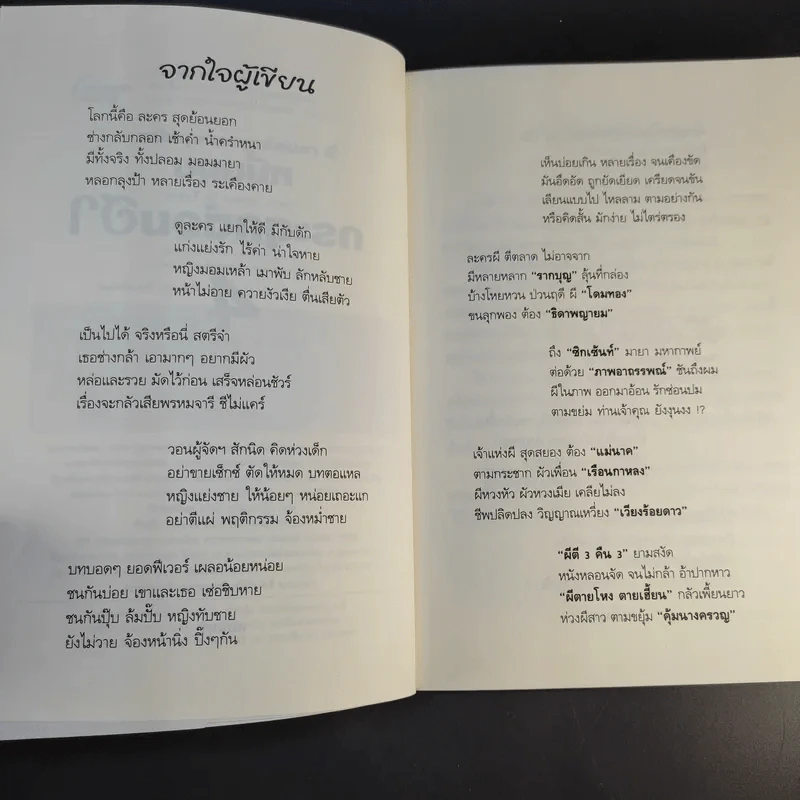 จากใจผู้เขียน
โลกนี้คือ ละคร สุดย้อนยอก
ช่างกลับกลอก เช้าค่ำ น้ำครำหนา
มีทั้งจริง ทั้งปลอม มอมมายา
หลอกลุงป้า หลายเรื่อง ระเคืองคาย
ดูละคร แยกให้ดี มีกับดัก
แก่งแย่งรัก ไร้ค่า น่าใจหาย
หญิงมอมเหล้า เมาพับ ลักหลับชาย
หน้าไม่อาย ควายงัวเงีย ตื่นเสียตัว
เป็นไปได้ จริงหรือนี่ สตรีจ๋า
เธอช่างกล้า เอามากๆ อยากมีผัว
หล่อและรวย มัดไว้ก่อน เสร็จหล่อนชัวร์
เรื่องจะกลัวเสียพรหมจารี ชีไม่แคร์
วอนผู้จัดฯ สักนิด คิดห่วงเด็ก
อย่าขายเซ็กซ์ ตัดให้หมด บทตอแหล
หญิงแย่งชาย ให้น้อยๆ หน่อยเถอะแก
อย่าตีแผ่ พฤติกรรม จ้องหม่ำชาย
บทบอดๆ ยอดฟีเวอร์ เผลอน้อยหน่อย
ชนกันบ่อย เขาและเธอ เซ่อชิบหาย
ชนกันปุ๊บ ล้มปั๊บ หญิงทับชาย
ยังไม่วาย จ้องหน้านิ่ง ปิ๊งๆกัน
เห็นบ่อยเกิน หลายเรื่อง จนเคืองขัด
มันอึดอัด ถูกยัดเยียด เครียดจนชัน
เลียนแบบไป ไหลลาม ตามอย่างกัน
หรือคิดสั้น มักง่าย ไม่ไตร่ตรอง
ละครผี ตีตลาด ไม่อาจจาก
มีหลายหลาก “รากบุญ” ลุ้นที่กล่อง
บ้างโหยหวน ป่วนฤดี ผี “โดมทอง”
ขนลุกพอง ต้อง “ธิดาพญายม”
ถึง “ซิกเซ้นท์” มายา มหากาพย์
ต่อด้วย “ภาพอาถรรพณ์” ชันถึงผม
ผีในภาพ ออกมาอ้อน รักซ่อนปม
ตามขย่ม ท่านเจ้าคุณ ยังงุนงง !?
เจ้าแห่งผี สุดสยอง ต้อง “แม่นาค”
ตามกระชาก ผัวเพื่อน “เรือนกาหลง”
ผีหวงหัว ผัวหวงเมีย เคลียไม่ลง
ชีพปลิดปลง วิญญาณเหวี่ยง “เวียงร้อยดาว”
“ผีตี 3 คืน 3” ยามสงัด
หนังหลอนจัด จนไม่กล้า อ้าปากหาว
“ผีตายโหง ตายเฮี้ยน” กลัวเพี้ยนยาว
ห่วงผีสาว ตามขยุ้ม “คุ้มนางครวญ”